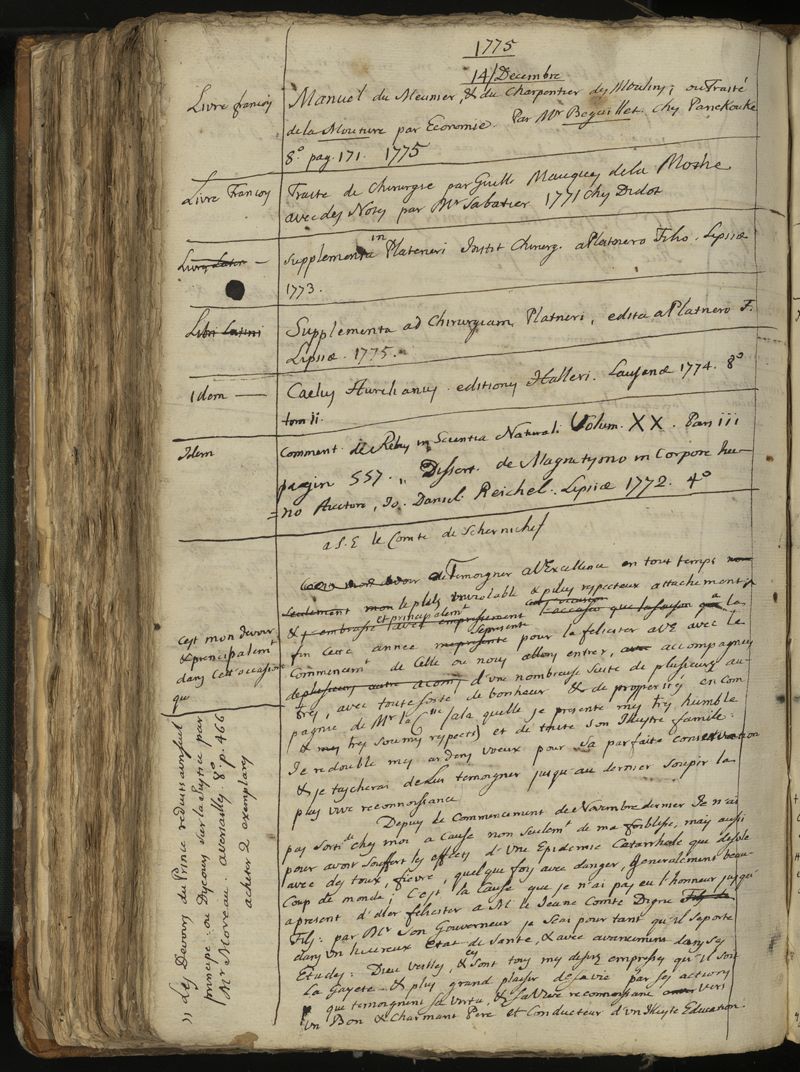 1775
14/Decembre
Livre françoy
Manuel du Meunier, & du Charpentier des Moulins; ou Traité
de la Mouture par Economie. Par Mr Beguillet. chez Panckouke
8.º pag. 171. 1775
Livre Françoy
Traite de Chirurgie par Guill. Mauquest de la Mothe
avec des Notes par Mr Sabatier 1771 chez Didot
Livres Latin —
Supplementa in Plateneri Instit Chirurg. a Platnero Filio. Lipsiæ
1773.
Libri Latini
Supplementa ad Chirurgiam Platneri, edita a Platnero F.
Lipsiæ. 1775.
Idem —
Caelius Aurelianus editionis Halleri. Lausanæ 1774. 8º
tom ii.
Idem
Comment. de Rebus in Scientia Naturali Volum. XX. Pars iii
pagin 557. „ Dissert. de Magnetismo in Corpore hu-
=no Auctore, Jo. Daniel. Reichel. Lipsiæ 1772. 4º
a S. E le Comte de Schernichef
de Temoigner a V. Excellence en tout temps non
seulement mon le plus inviolable & plus respecteux attachement
& j'embrasse avec empressement et principalemt l'occasion que la
c'est mon devoir
& principalemt
dans cest occasione
que
fin cette année represente pour la feliciter a V.E avec le
Commencemt de celle ou nous allons entrer, avec accompagnée
de plusieurs autre d'une nombreuse suite de plusieurs au-
tres, avec toute sorte de bonheur & de properité en com
pagnie de Mme la Ctesse a la quelle je presente mes trés humble
& mes trés soumis respects) et de toute son Illustre famile:
Je redouble mes ardens voeux pour sa parfaite conservation
& je tascherai de lui temoigner jusqu'au dernier soupir la
plus vive reconnoissance
Depuis le Commencement de Novembre dernier Je n'ai
pas sorti de chez moi a Cause non seulemt de ma foiblesse, mais aussi
pour avoir souffert les effects d'une Epidemie Catarrhale que desole
avec des toux, fievre, quelque fois avec danger, generalement beau-
coup de monde; C'est la Cause que je n'ai pas eu l'honneur jusqu'
apresent d'aler feliciter a M. le Jeune Comte Digne Fils de
Fils: par Mr son Gouverneur je scai pour tant qu'il se porte
dans un heureux Etat de santé, & avec avancemens dans ses
Etudes: Dieu veilles, & ces sont tous mes desirs empressés qu'il soit
La Gayeté & plus grand plaisir de sa vie par ses actions
que temoignent sa vertu, & sa vive reconnoissance vers
Un Bon & Charmant Pere et Conducteur d'un Illustre Education.
„ Les Devoirs du Prince reduits a un seul
principe: ou Discours sur la Justice par
Mr Moreau. a Versailles. 8º p. 466
acheter 2 exemplars